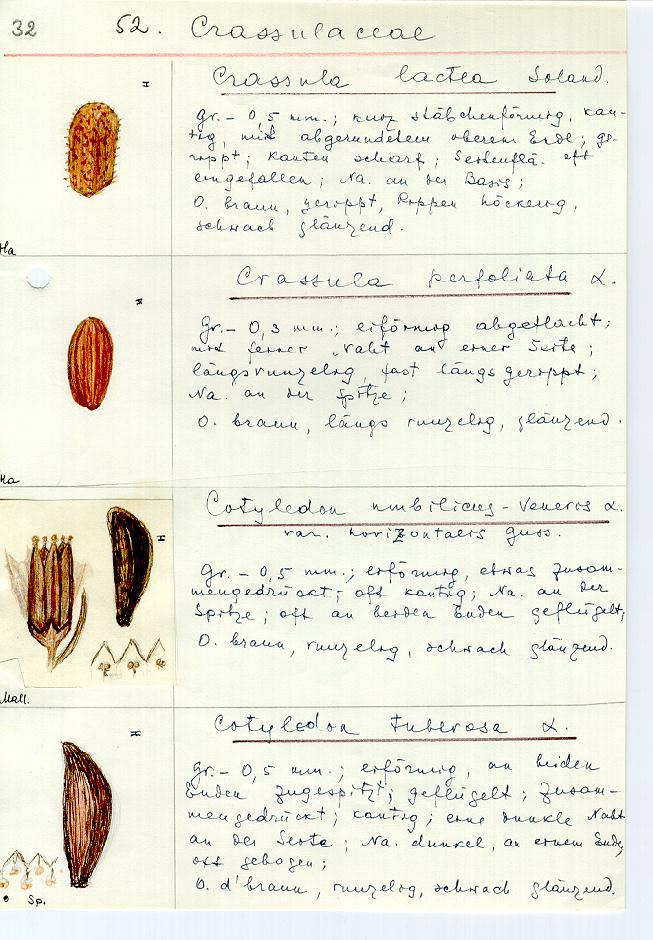 32 52. Crassulaceae
Crassula lactea Soland.
H
gr. - 0,5 mm.; kurz stäbchenförmig, kan-
tig, mit abgerundetem oberem Ende; ge-
rippt; kanten scharf; Seitenflä. oft
eingefallen; Na. an der Basis;
O. braun, gerippt, Rippen höckerig,
schwach glänzend.
Ha
Crassula perfoliata L.
H
gr. - 0,3 mm.; eiförmig abgeflacht;
mit feiner Naht an einer Seite;
längsrunzelig, fast längsgerippt;
Na. an der Spitze;
O. braun, längs runzelig, glänzend.
Ha
Cotyledon umbilicus-Veneris L.
var. horizontalis Guss.
H
gr. - 0,5 mm.; eiförmig, etwas zusam-
mengedrückt; oft kantig; Na. an der
Spitze; oft an beiden Enden geflügelt;
O. braun, runzelig, schwach glänzend.
Mall.
Cotyledon tuberosa L.
H
gr. - 0,5 mm.; eiförmig, an beiden
Enden zugespitzt; geflügelt; zusam-
mengedrückt; kantig; eine dunkle Naht
an der Seite; Na. dunkel, an einem Ende,
oft gebogen;
O. d'braun, runzelig, schwach glänzend.
Sp.